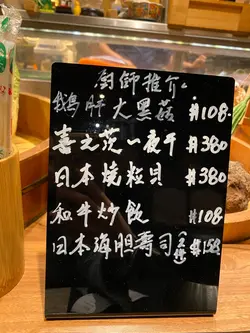 廚師推介
鵝肝大黑菇 $108.
喜之茂一夜干 $380
日本燒粒貝 $380
和牛炒飯 $108
日本海胆壽司(2件) $158